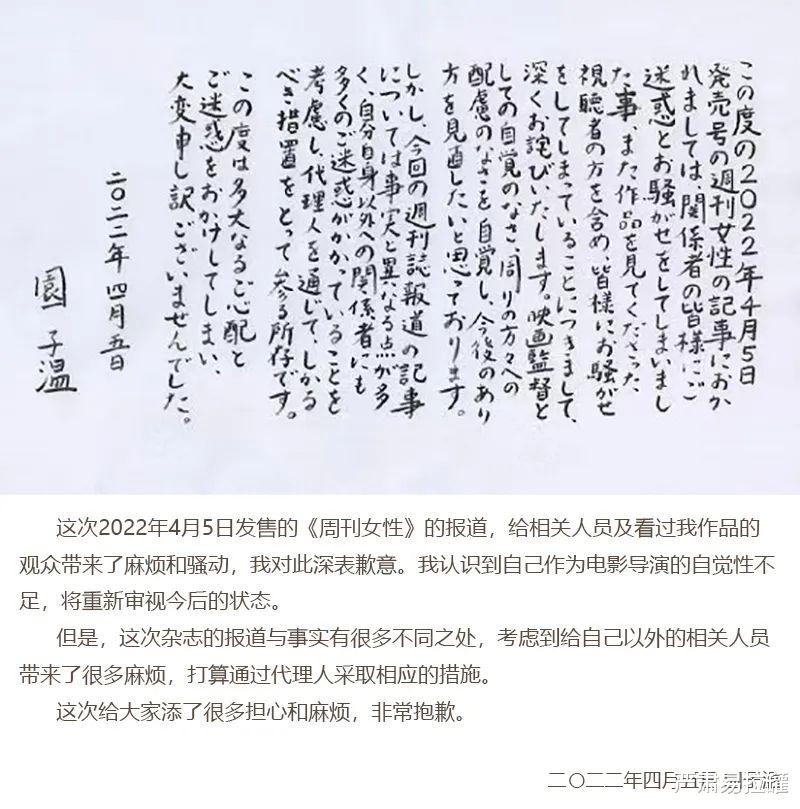 この度の2022年4月5日
発売号の週刊女性の記事におか
れましては、関係者の皆様にご
迷惑とお騒がせをしてしまいまし
た事、また作品を見てくださった、
視聴者の方を含め、皆様にお騒がせ
をしてしまっていることにつきまして、
深くお詫びいたします。映画監督と
しての自覚のなさ、周りの方々への
配慮のなさを自覚し、今後のあり
方を見直したいと思っております。
しかし、今回の週刊誌報道の記事
については事実と異なる点が多
く、自分自身以外への関係者にも
多くのご迷惑がかかっていることを
考慮し、代理人を通じて、しかる
べき措置をとって参る所存です。
この度は多大なるご心配と
ご迷惑をおかけしてしまい、
大変申し訳ございませんでした。
二〇二二年 四月五日
園 子温
这次2022年4月5日发售的《周刊女性》的报道，给相关人员及看过我作品的
观众带来了麻烦和骚动，我对此深表歉意。我认识到自己作为电影导演的自觉性不
足，将重新审视今后的状态。
但是，这次杂志的报道与事实有很多不同之处，考虑到给自己以外的相关人员
带来了很多麻烦，打算通过代理人采取相应的措施。
这次给大家添了很多担心和麻烦，非常抱歉。
二〇二二年四月五日
严肃易拉罐